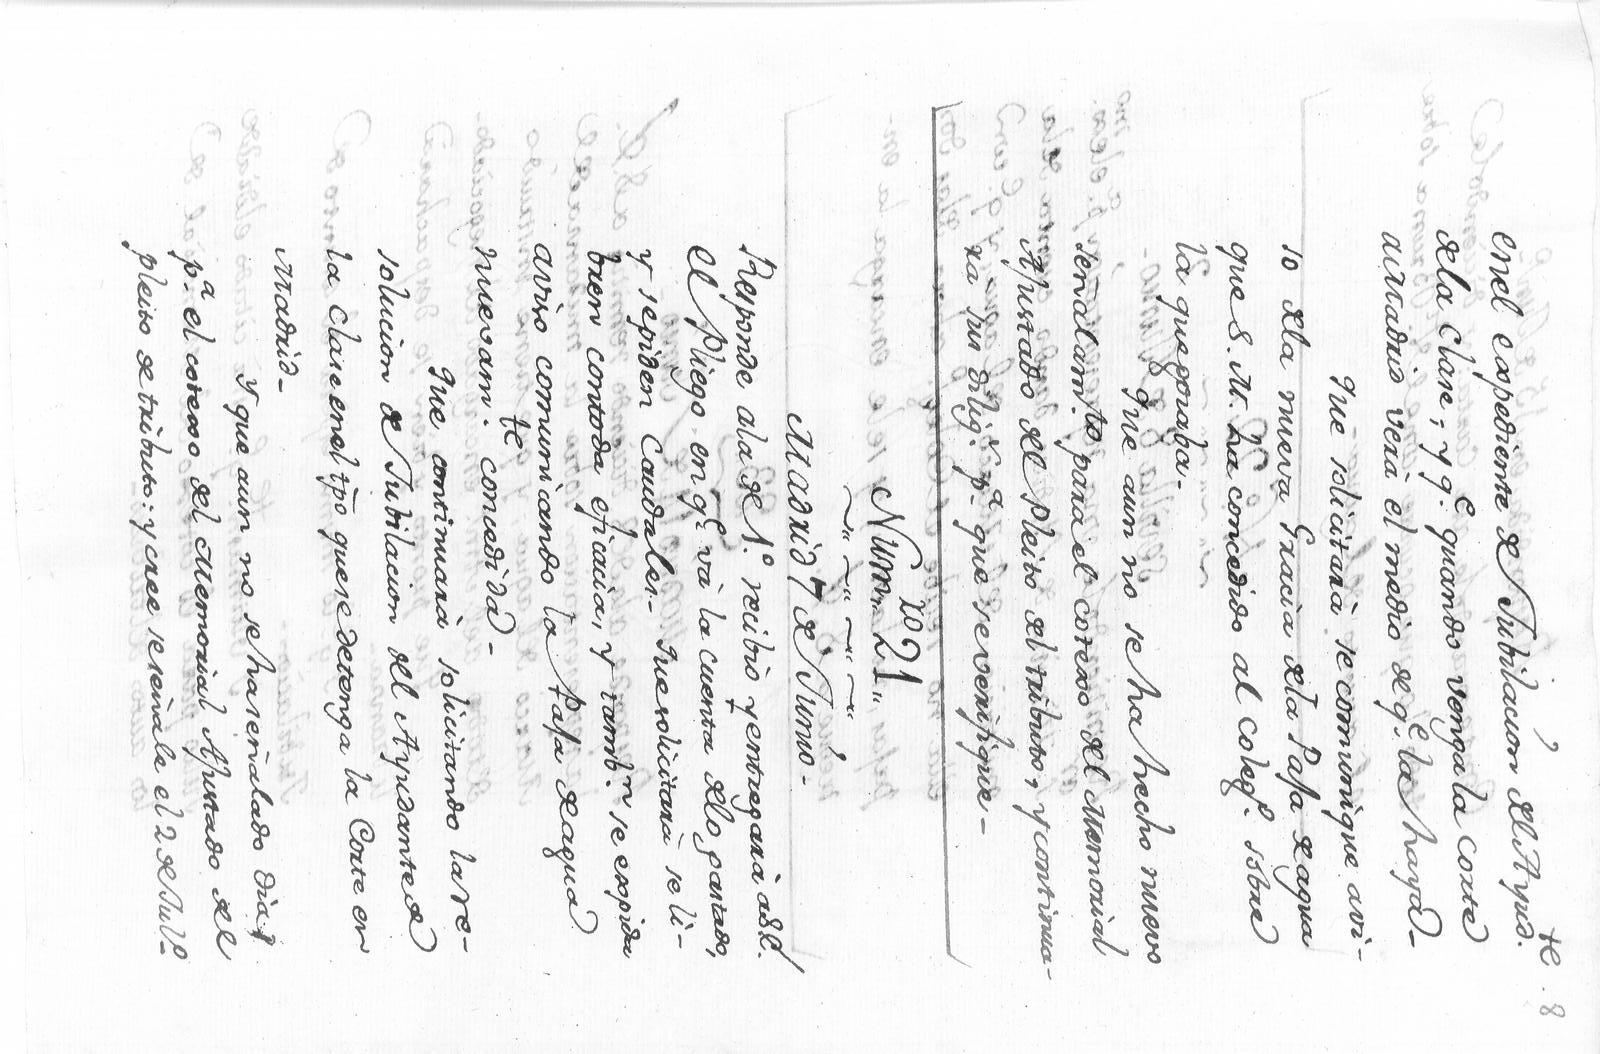 8
enel expediente de Jubilacion del Ayud.te
dela Clase, y q.e quando venga la corte
a Madrid verá el modo de q.e la haga-
Que solicitará se comunique avi-
so dela nueva Gracia dela Paja de agua
que S. M. ha concedido al coleg.o sobre
la que gozaba-
Que aun no se ha hecho nuevo
señalam.to para el cotexo del Memorial
Ajustado del Pleito del tributo, y continua-
rá su dilig.a p.a que se verifique-
Num.ro 21,,
Madrid 7 de Junio-
Responde ala de 1.o recibio y entregará a S.E.
el Pliego en q.e vá la cuenta delo gastado,
y se piden caudales- Que solicitará se li-
bren con toda eficacia, y tamb.n se expida
aviso comunicando la Paja de agua
nuevam.te concedida-
Que continuará solicitando la re-
solucion de Jubilacion del Ayudante de
la Clase en el tpo que se detenga la Corte en
Madrid-
Y que aun no se ha señalado dia
p.a el cotexo del Memorial Ajustado del
pleito de tributo: y cree se señale el 2 de Julo-